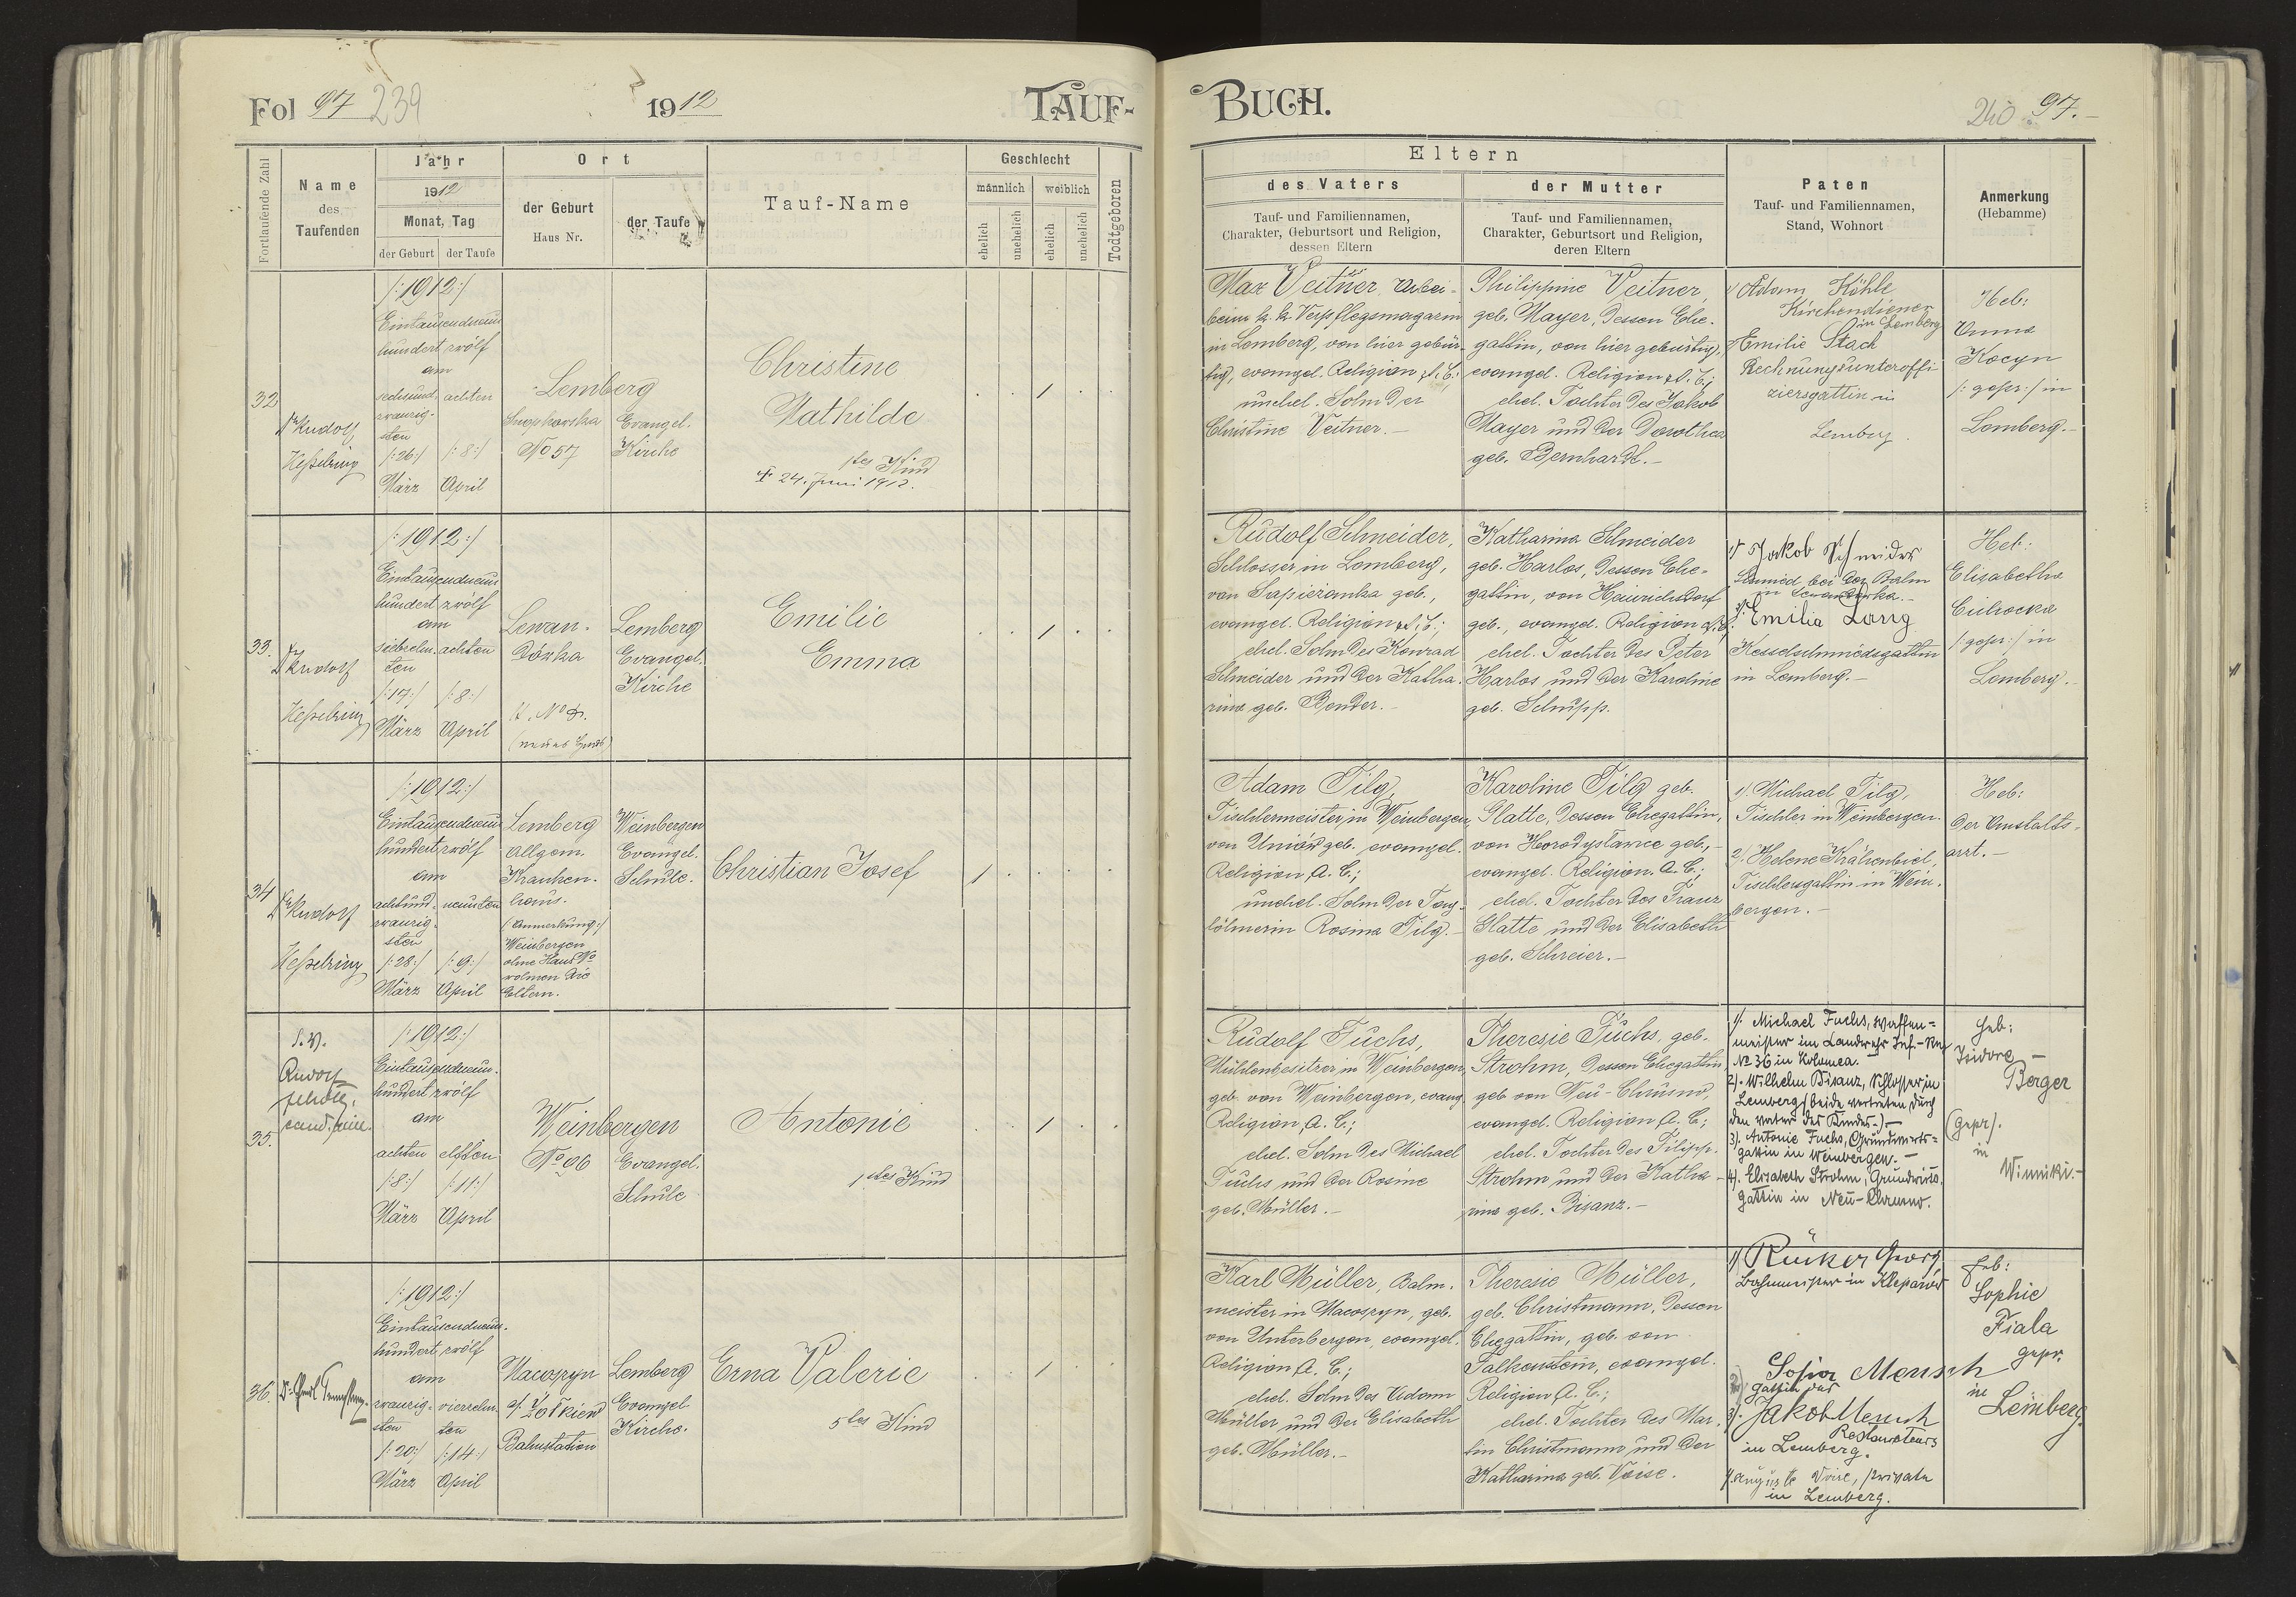 Fol 97 239
1912
TAUF-
BUCH.
240 97.-
Fortlaufende Zahl
Name
des
Taufenden
Jahr
1912
Monat, Tag
der Geburt
der Taufe
Ort
der Geburt
Haus Nr.
der Taufe
Tauf-Name
Geschlecht
männlich
weiblich
ehelich
unehelich
ehelich
unehelich
Todtgeboren
Eltern
des Vaters
Tauf- und Familiennamen,
Charakter, Geburtsort und Religion,
dessen Eltern
der Mutter
Tauf- und Familiennamen,
Charakter, Geburtsort und Religion,
deren Eltern
Paten
Tauf- und Familiennamen,
Stand, Wohnort
Anmerkung
(Hebamme)
32
Dr Rudolf
Keßelring
/:1912:/
Eintausendneun
hundert zwölf
am
sechsund-
zwanzig-
sten
/:26:/
März
achten
/:8:/
April
Lemberg
No 57
Evangel.
Kirche
Christine
Mathilde
1tes Kind
† 24. Juni 1912.
1
Max Veitner, Arbei-
beim k. k. Verpflegsmagazin
in Lemberg, von hier gebür-
tig, evangel. Religion A. C.;
unehel. Sohn der
Christine Veitner.-
Philippine Veitner,
geb. Mayer, dessen Ehe-
gattin, von hier gebürtig,
evangel. Religion A. C.;
ehel. Tochter des Jakob
Mayer und der Dorothea
geb. Bernhardt.-
1/ Adam Köhle
Kirchendiener
in Lemberg
Emilie Stach
Rechnungsunteroffi
ziersgattin in
Lemberg.
Heb:
Anna
Kocyn
/:gepr:/ in
Lemberg.-
33.
Dr Rudolf
Keßelring
/:1912:/
Eintausendneun
hundert zwölf
am
siebzehn-
ten
/:17:/
März
achten
/:8:/
April
Lewan-
dówka
(neues Haus)
Lemberg
Evangel.
Kirche
Emilie
Emma
1
Rudolf Schneider,
Schlosser in Lemberg,
von Sapiezanka geb.,
evangel. Religion A. C.;
ehel. Sohn des Konrad
Schneider und der Katha-
rina geb. Bender.-
Katharina Schneider
geb. Harlos, dessen Ehe-
gattin, von Heinrichsdorf
geb., evangel. Religion A. C.
ehel. Tochter des Peter
Harlos und der Karoline
geb. Schupp.
1/ Jakob Schneider
Schmied bei der Bahn
in Lewandówka.-
2/. Emilia Lang
Kesselschmiedsgattin
in Lemberg.-
Heb:
Elisabetha
Cichocka
/:gepr:/ in
Lemberg.-
34
Dr Rudolf
Keßelring
/:1912:/
Eintausendneun
hundert zwölf
am
achtund-
zwanzig-
sten
/:28:/
März
neunten
/:9:/
April
Lemberg
Allgem.
Kranken-
haus.
(Anmerkung:/
Weinbergen
ohne Haus No
wohnen die
Eltern.
Weinbergen
Evangel.
Schule.
Christian Josef
1
Adam Tilg,
Tischlermeister in Weinbergen,
von Uniów geb. evangel.
Religion A. C.;
unehel. Sohn der Tag-
löhnerin Rosina Tilg.-
Karoline Tilg geb.
Glatte, dessen Ehegattin,
von Horodyslawice geb.,
evangel. Religion A. C.;
ehel. Tochter des Franz
Glatte und der Elisabeth
geb. Schreier.-
1/ Michael Tilg,
Tischler in Weinbergen.
2/. Helene Krähenbiel,
Tischlersgattin in Wein-
bergen.-
Heb:
der Anstalts-
arzt.-
35.
i. V.
Rudolf
cand. min.
/:1912:/
Eintausendneun-
hundert zwölf
am
achten
/:8:/
März
elften
/:11:/
April
Weinbergen
No 96
Evangel.
Schule
Antonie
1tes Kind
1
Rudolf Fuchs,
Mühlenbesitzer in Weinbergen,
geb. von Weinbergen, evang.
Religion A. C.;
ehel. Sohn des Michael
Fuchs und der Rosine
geb. Müller.-
Theresie Fuchs, geb.
Strohm, dessen Ehegattin,
geb. von Neu-Chrusno,
evangel. Religion A. C.;
ehel. Tochter des Filipp
Strohm und der Katha-
rina geb. Bisanz.-
1/. Michael Fuchs, Waffen=
meister im Landwehr Inf.-Reg
No 36 in Kolomea.-
2/. Wilhelm Bisanz, Schlosser in
Lemberg (beide vertreten durch
den Vater des Kindes-)-
3). Antonie Fuchs, Grundwirts=
gattin in Weinbergen.-
4). Elisabeth Strohm, Grundwirts.
gattin in Neu-Chrusno.
Heb:
Isidore
Berger
(gepr).
in
Winniki.-
36.
/:1912:/
Eintausendneun-
hundert zwölf
am
zwanzig-
sten
/:20:/
März
vierzehn-
ten
/:14:/
April
Macoszyn
Bahnstation
Lemberg
Evangel
Kirche.
Erna Valerie
5tes Kind
1
Karl Müller, Bahn-
meister in Macoszyn, geb.
von Unterbergen, evangel.
Religion A. C.;
ehel. Sohn des Adam
Müller und der Elisabeth
geb. Müller.-
Theresie Müller,
geb. Christmann, dessen
Ehegattin, geb. von
Falkenstein, evangel.
Religion A. C.;
ehel. Tochter des Mar-
tin Christmann und der
Katharina geb. Voise.
1/ Rücker Georg,
Bahnmeister in Kleparów
2) Sofia Mensch
Gattin des
3). Jakob Mensch
Restaurateurs
in Lemberg.
4/ Auguste Voise, Private
in Lemberg.
Heb:
Sophie
Fiala
gepr.
in
Lemberg.